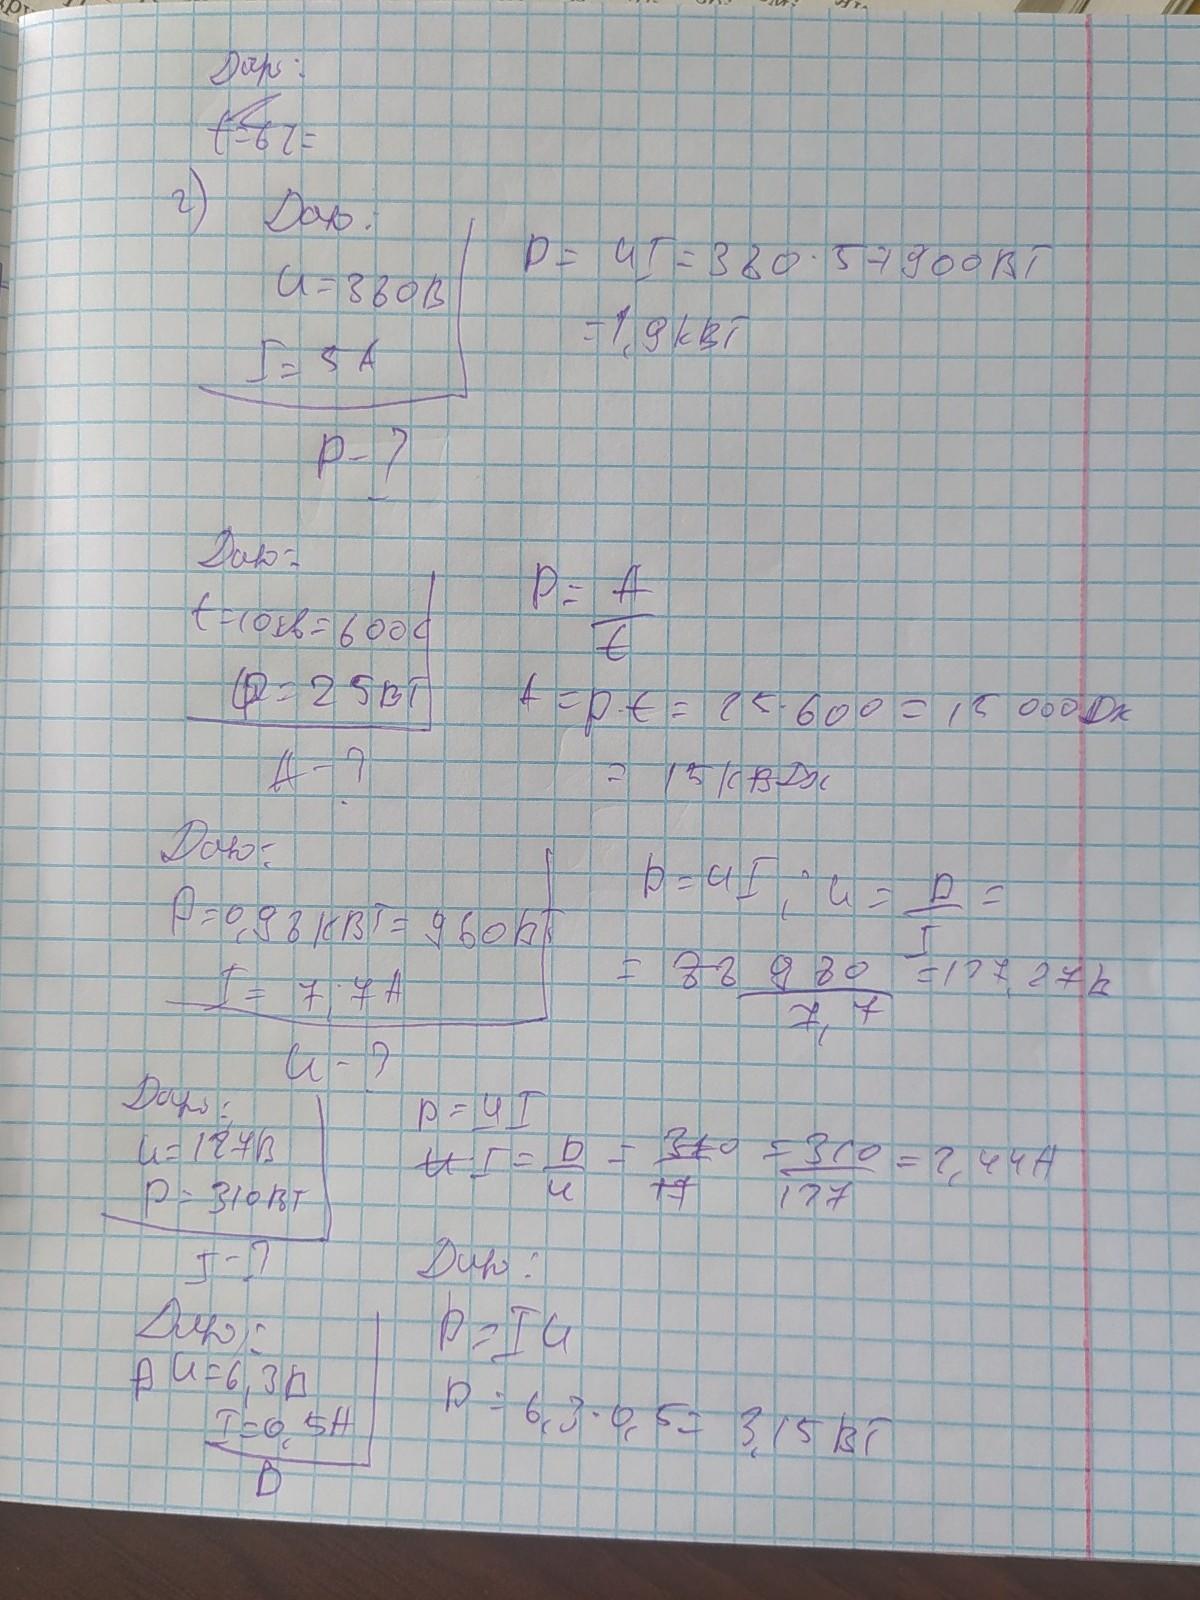 Дано:
2) Дано:
U=380В
I=5А
P-?
P= UI=380·5=1900ВТ
=1,9кВТ
Дано:
t=10хв=600с
P=25ВТ
A-?
P=A/t
A=p·t=25·600=15 000Дж
= 15кВДж
Дано:
P=0,98кВТ=980ВТ
I=7,7А
U-?
P=UI; U=P/I=
= 980/7,7 =127,27В
Дано:
U=127В
P=310ВТ
I-?
p=UI
I=P/U=310/17=310/127=2,44А
Дано:
Дано:
U=6,3В
I=0,5А
P
P=IU
P=6,3·0,5=3,15ВТ